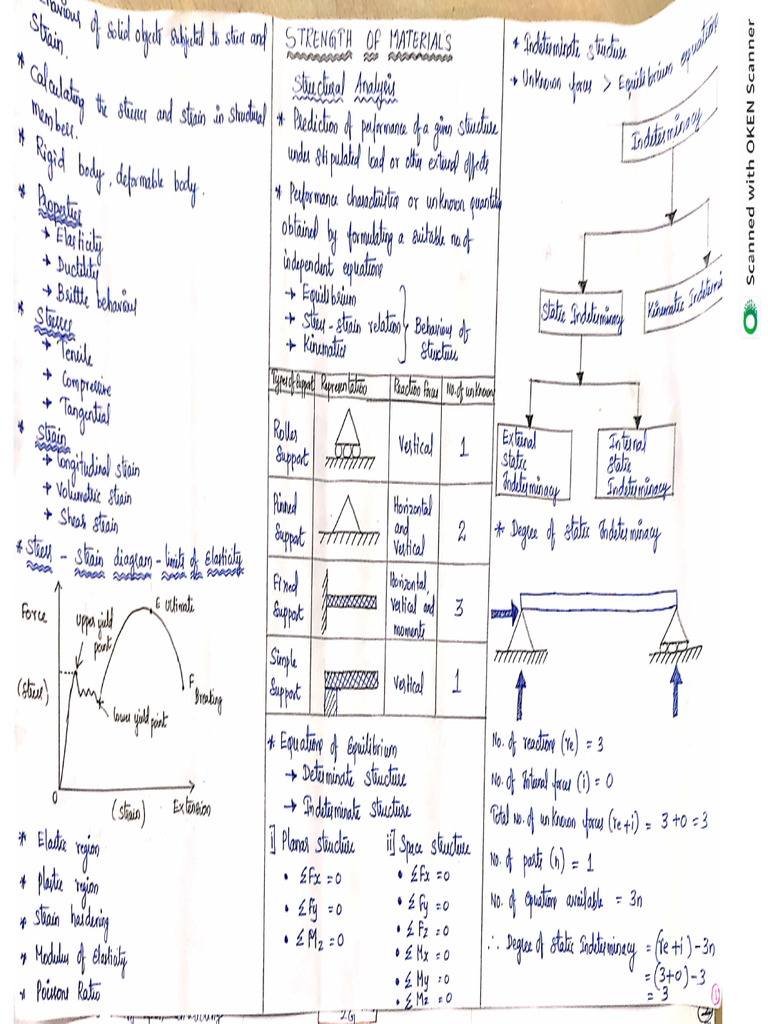 Behaviours of solid objects subjected to stress and
Strain.
* Calculating the stresses and strain in structural
members.
* Rigid body, deformable body.
* Properties
→ Elasticity
→ Ductility
→ Brittle behaviour
* Stresses
→ Tensile
→ Compressive
→ Tangential
* Strain
→ Longitudinal strain
→ Volumetric strain
→ Shear strain
* Stress - Strain diagram - limits of Elasticity
Force
(Stress)
Upper yield
point
E Ultimate
F
Breaking
lower yield point
O
(Strain)
Extension
* Elastic region
* Plastic region
* Strain hardening
* Modulus of Elasticity
* Poissons Ratio
STRENGTH OF MATERIALS
Structural Analysis
* Prediction of performance of a given structure
under stipulated load or other external effects
* Performance characteristics or unknown quantity
obtained by formulating a suitable no. of
independent equations
→ Equilibrium
→ Stress - strain relation
→ Kinematics
Behaviour of
Structure
Types of Support Representation Reaction Forces No. of unknown
Roller
Support
Vertical
1
Pinned
Support
Horizontal
and
Vertical
2
Fixed
Support
Horizontal,
vertical and
moments
3
Simple
Support
Vertical
1
* Equation of Equilibrium
→ Determinate structure
→ Indeterminate Structure
i] Planar structure
• ΣFx = 0
• ΣFy = 0
• ΣMz = 0
ii] Space structure
• ΣFx = 0
• ΣFy = 0
• ΣFz = 0
• ΣMx = 0
• ΣMy = 0
• ΣMz = 0
* Indeterminate structure
* Unknown forces > Equilibrium equations
Indeterminacy
Static Indeterminacy
Kinematic Indetermi
External
Static
Indeterminacy
Internal
Static
Indeterminacy
* Degree of Static Indeterminacy
No. of reactions (re) = 3
No. of Internal forces (i) = 0
Total No. of unknown forces (re+i) = 3+0 = 3
No. of parts (n) = 1
No. of equations available = 3n
∴ Degree of Static Indeterminacy = (re+i) - 3n
= (3+0) - 3
= 3
①
Scanned with OKEN Scanner